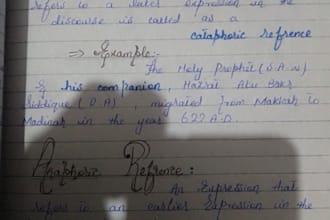 refers to a later expression in the
discourse is called as a
cataphoric refrence
⇒ Example:-
The Holy Prophet (S.A.W)
& his companion, Hazrat Abu Bakr
Siddique (R.A), migrated from Makkah to
Madinah in the year 622 A.D.
Anaphoric Refrence:
An Expression that
refers to an earlier expression in the